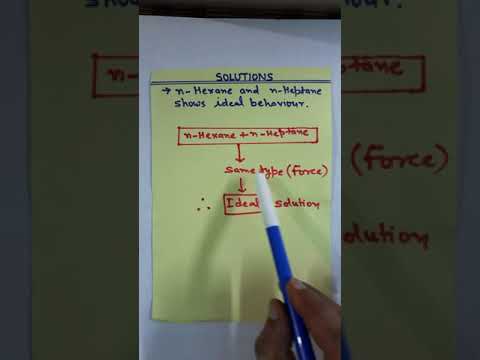 SOLUTIONS
→ n-Hexane and n-Heptane
shows ideal behaviour.
n-Hexane + n-Heptane
same type (force)
∴ Ideal solution